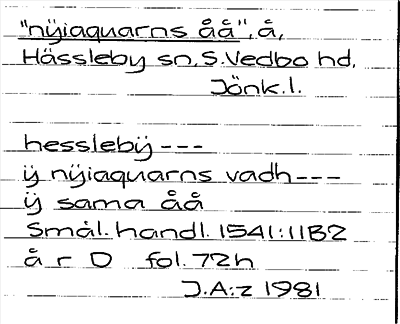 "nÿiaquarns åå", å,
Hässleby sn, S. Vedbo hd,
Jönk. l.
hesslebÿ ---
ÿ nÿiaquarns vadh ---
ÿ sama åå
Smål. handl. 1541:11B2
å r D fol. 72h
J.A:z 1981